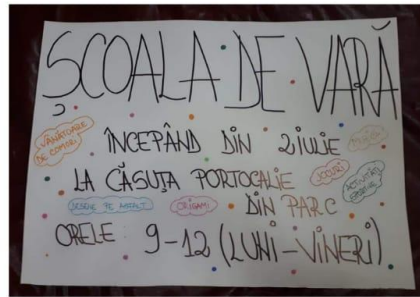 ȘCOALA DE VARĂ
VÂNĂTOARE
DE COMORI
ÎNCEPÂND DIN 2 IULIE
LA CĂSUȚA PORTOCALIE
JOCURI
ACTIVITĂȚI
DESENE PE ASFALT
ORIGAMI
DIN PARC
ORELE: 9-12 (LUNI-VINERI)